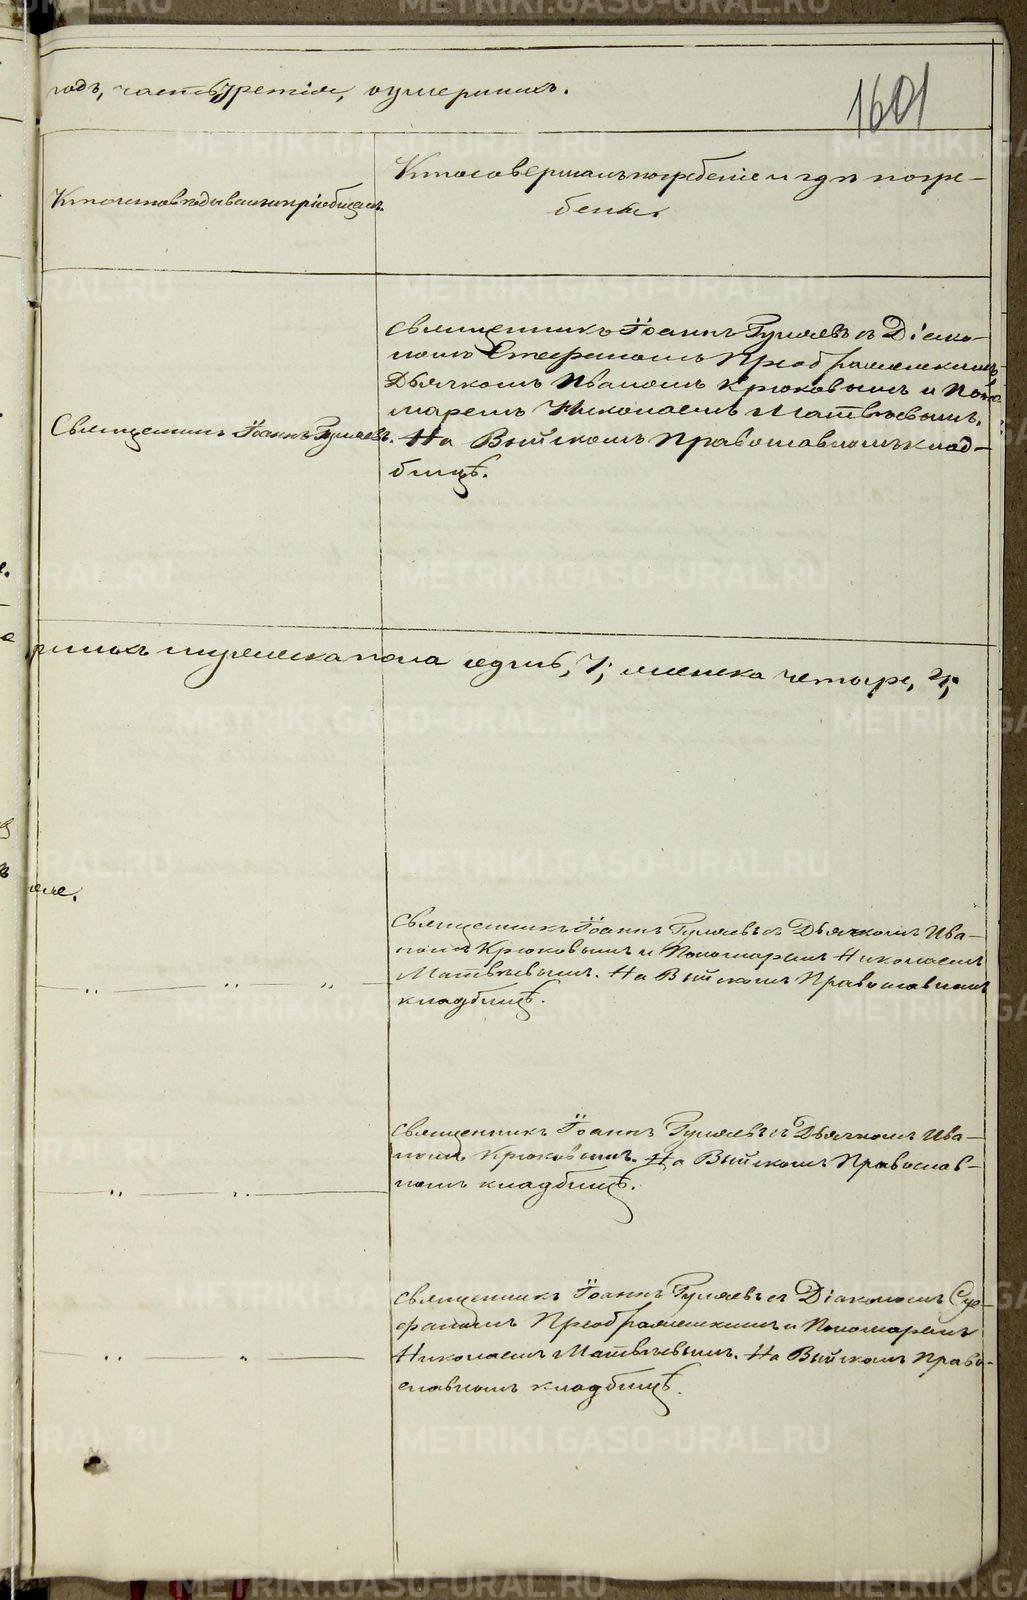 годъ, часть третія, о умершихъ.
1601
Кто исповѣдывалъ и пріобщалъ.
Кто совершалъ погребеніе и гдѣ погре-
бены.
Священникъ Іоаннъ Гуляевъ съ Діако-
номъ Стефаномъ Преображенскимъ
Дьячкомъ Иваномъ Крюковымъ и Поно-
маремъ Николаемъ Матвѣевымъ.
Священникъ Іоаннъ Гуляевъ.
На Выйскомъ Православномъ клад-
бищѣ.
ршихъ мужеска пола одинъ, 1; женска четыре, 4;
Священникъ Іоаннъ Гуляевъ съ Дьячкомъ Ива-
номъ Крюковымъ и Пономаремъ Николаемъ
Матвѣевымъ. На Выйскомъ Православномъ
кладбищѣ.
Священникъ Іоаннъ Гуляевъ съ Дьячкомъ Ива-
номъ Крюковымъ. На Выйскомъ Православ-
номъ кладбищѣ.
Священникъ Іоаннъ Гуляевъ съ Діакономъ Сте-
фаномъ Преображенскимъ и Пономаремъ
Николаемъ Матвѣевымъ. На Выйскомъ Право-
славномъ кладбищѣ.
METRIKI.GASO-URAL.RU